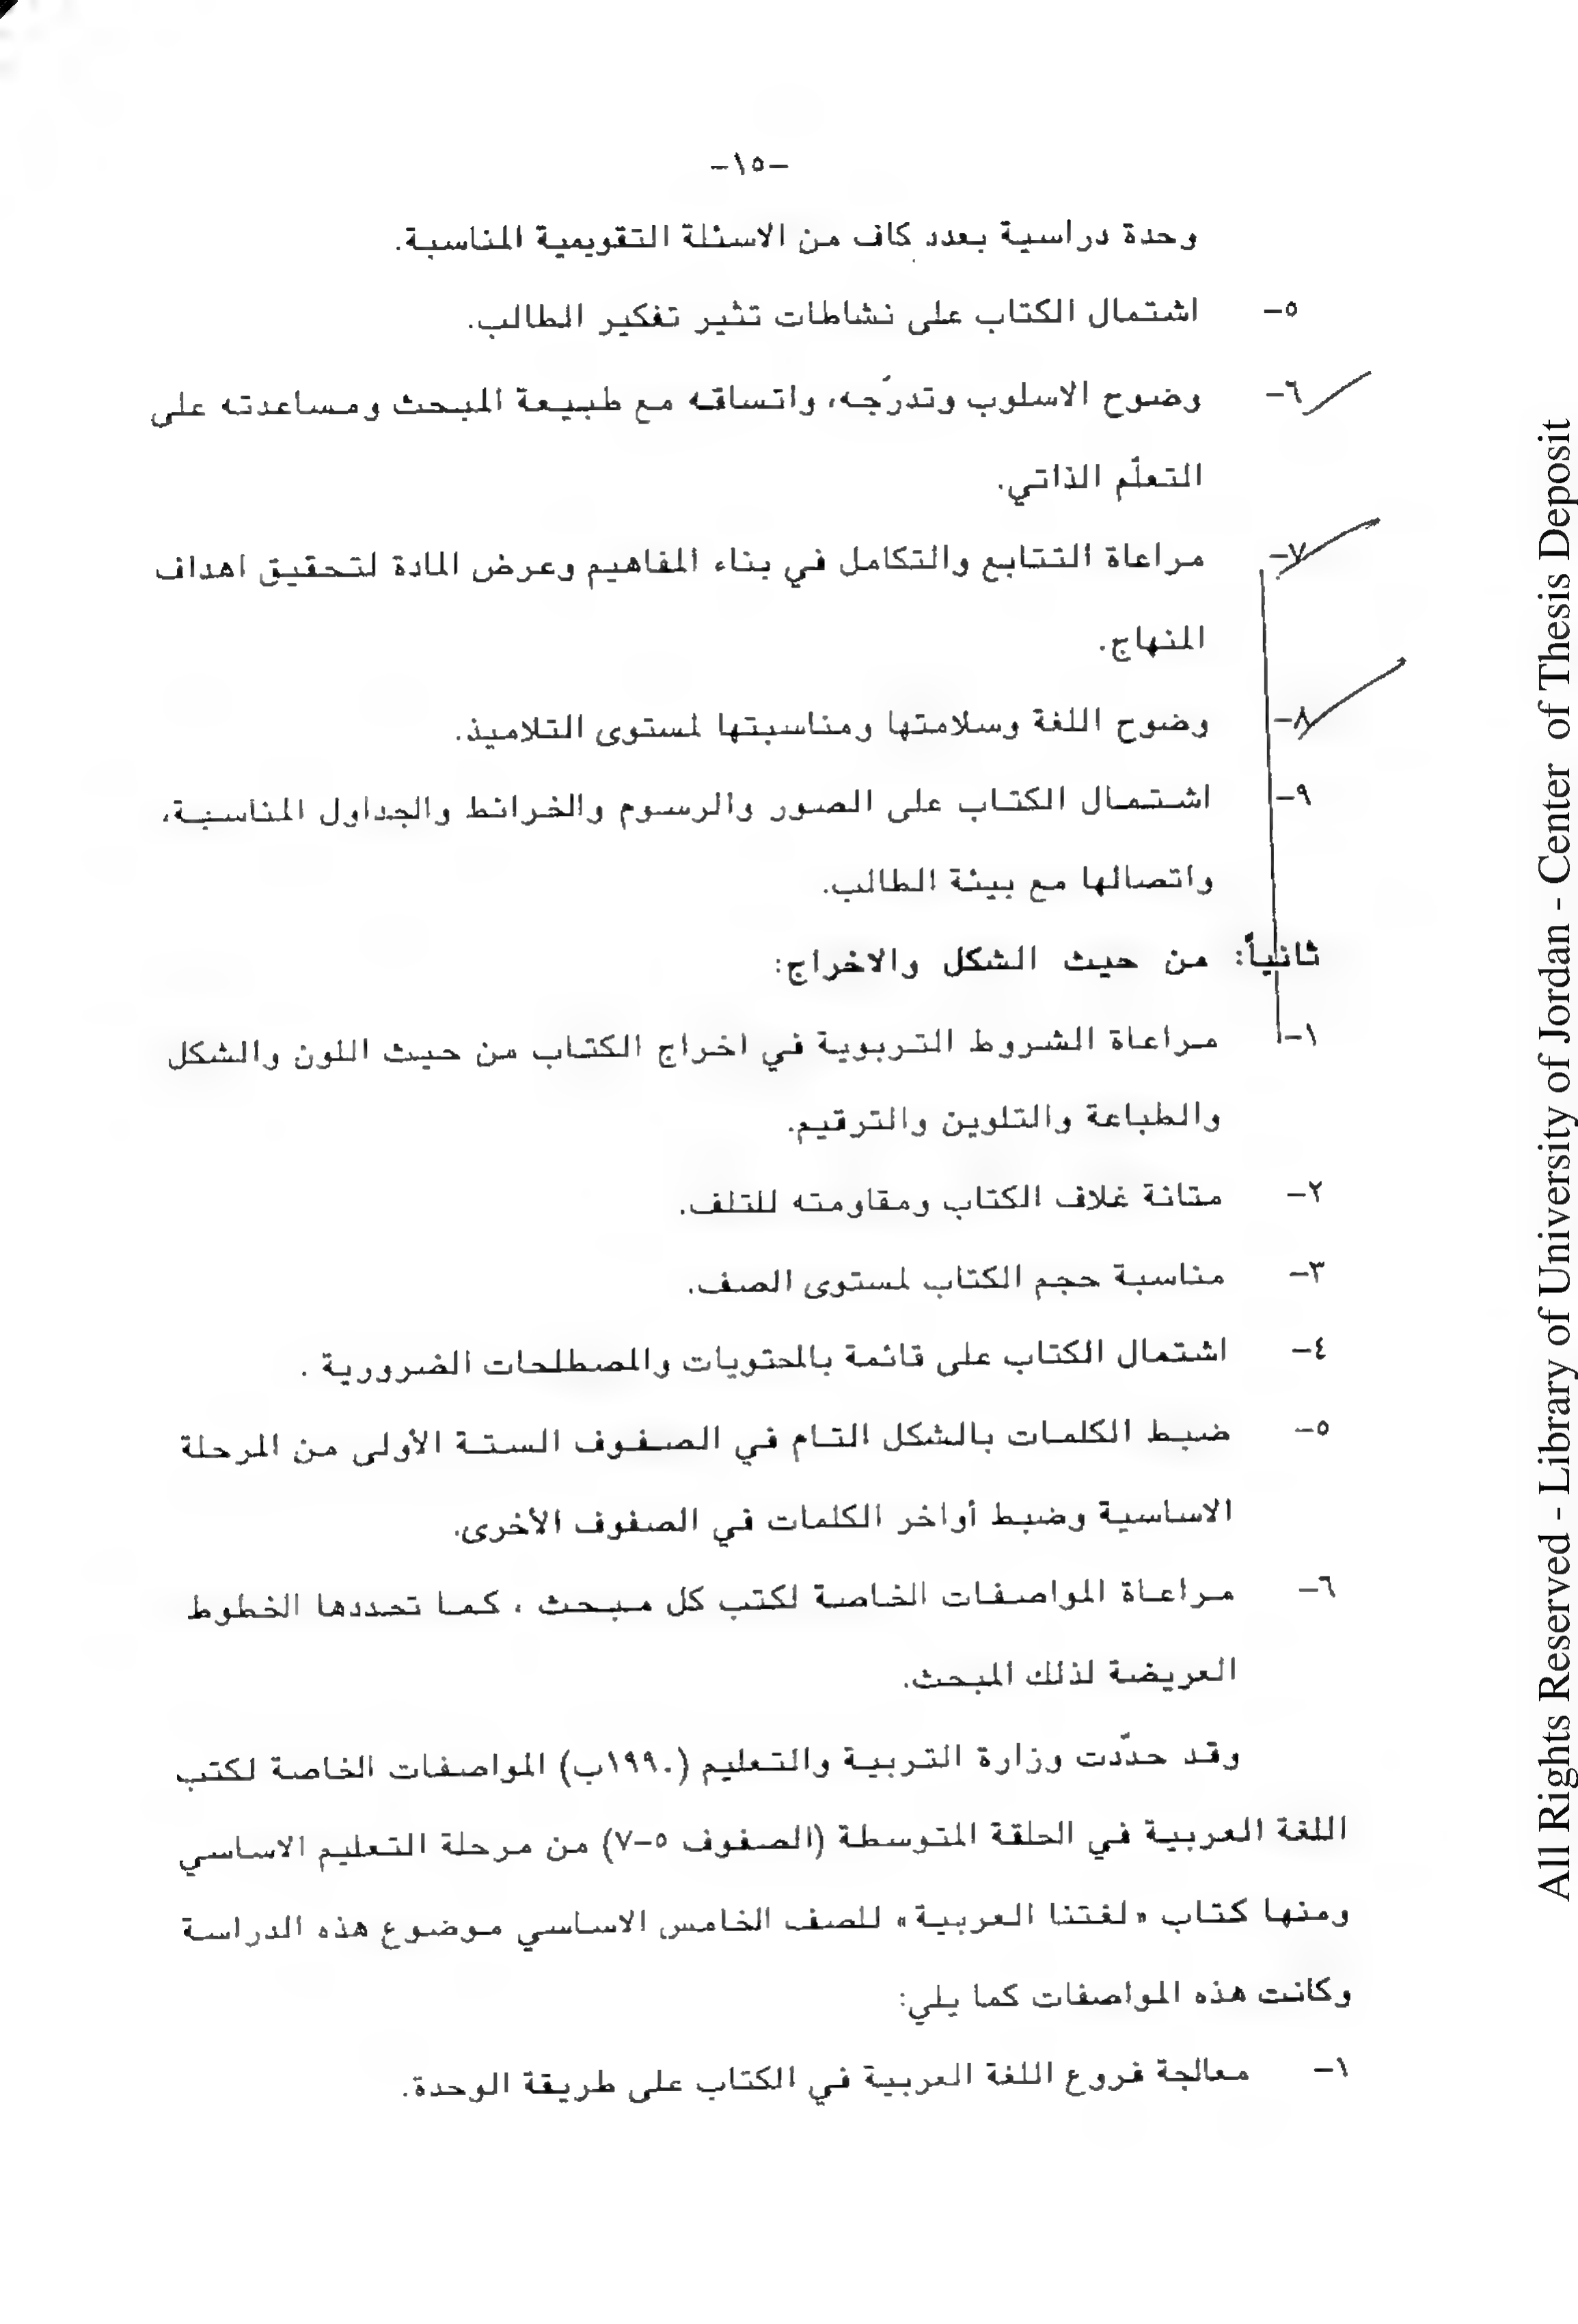 -١٥-
وحدة دراسية بعدد كاف من الاسئلة التقويمية المناسبة.
٥- اشتمال الكتاب على نشاطات تثير تفكير الطالب.
٦- وضوح الاسلوب وتدرّجه، واتساقه مع طبيعة المبحث ومساعدته على
التعلّم الذاتي.
٧- مراعاة التتابع والتكامل في بناء المفاهيم وعرض المادة لتحقيق اهداف
المنهاج.
٨- وضوح اللغة وسلامتها ومناسبتها لمستوى التلاميذ.
٩- اشتمال الكتاب على الصور والرسوم والخرائط والجداول المناسبة،
واتصالها مع بيئة الطالب.
ثانياً: من حيث الشكل والاخراج:
١- مراعاة الشروط التربوية في اخراج الكتاب من حيث اللون والشكل
والطباعة والتلوين والترقيم.
٢- متانة غلاف الكتاب ومقاومته للتلف.
٣- مناسبة حجم الكتاب لمستوى الصف.
٤- اشتمال الكتاب على قائمة بالمحتويات والمصطلحات الضرورية .
٥- ضبط الكلمات بالشكل التام في الصفوف الستة الأولى من المرحلة
الاساسية وضبط أواخر الكلمات في الصفوف الأخرى.
٦- مراعاة المواصفات الخاصة لكتب كل مبحث ، كما تحددها الخطوط
العريضة لذلك المبحث.
وقد حدّدت وزارة التربية والتعليم (١٩٩٠ب) المواصفات الخاصة لكتب
اللغة العربية في الحلقة المتوسطة (الصفوف ٥-٧) من مرحلة التعليم الاساسي
ومنها كتاب «لغتنا العربية» للصف الخامس الاساسي موضوع هذه الدراسة
وكانت هذه المواصفات كما يلي:
١- معالجة فروع اللغة العربية في الكتاب على طريقة الوحدة.
All Rights Reserved - Library of University of Jordan - Center of Thesis Deposit